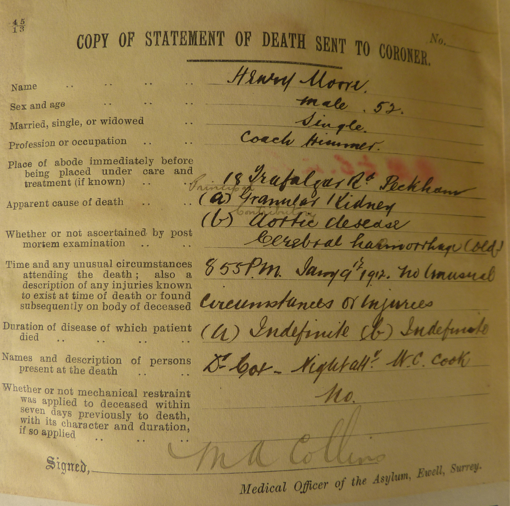 45
13
COPY OF STATEMENT OF DEATH SENT TO CORONER.
No.
Name .. .. .. .. Henry Moore.
Sex and age .. .. .. male. 52.
Married, single, or widowed .. Single.
Profession or occupation .. .. Coach
Place of abode immediately before
being placed under care and
treatment (if known) .. .. 18 Trafalgar Rd Peckham
Principal
Apparent cause of death .. .. (a) Granular Kidney
Contributory
(b) Aortic disease
Whether or not ascertained by post
mortem examination .. .. Cerebral haemorrhage (old)
Time and any unusual circumstances
attending the death; also a
description of any injuries known
to exist at time of death or found
subsequently on body of deceased
8 55 P.M. Jany 9th 1912. No unusual
circumstances or injuries
Duration of disease of which patient
died .. .. .. .. (a) Indefinite (b) Indefinite
Names and description of persons
present at the death .. .. Dr Cox - Night attt. W.C. Cook
Whether or not mechanical restraint
was applied to deceased within
seven days previously to death,
with its character and duration,
if so applied .. .. .. No.
Signed, M A Collins
Medical Officer of the Asylum, Ewell, Surrey.